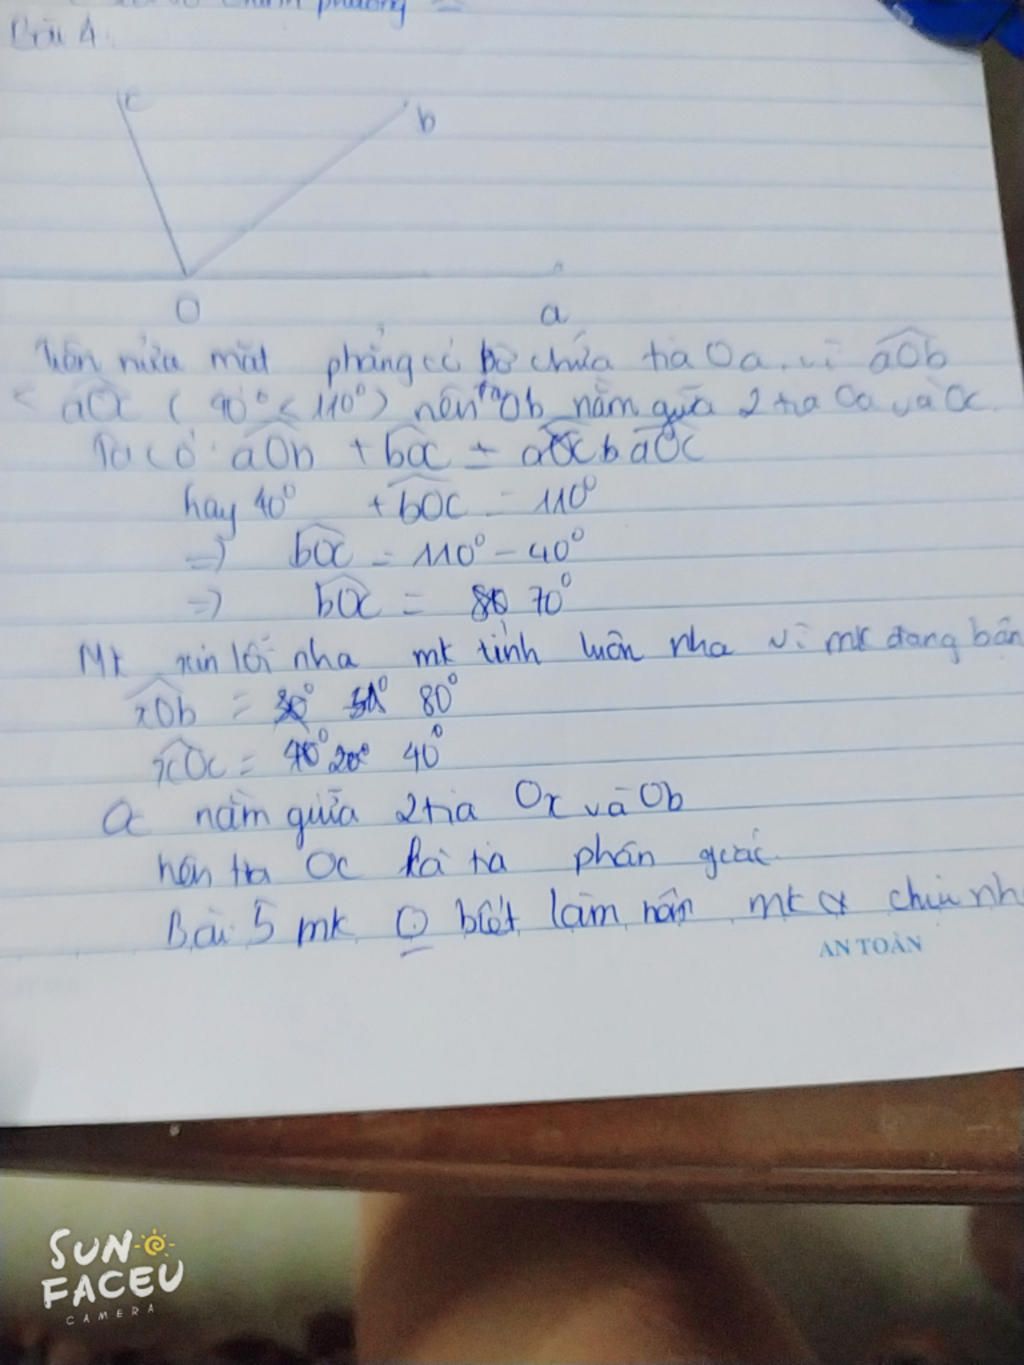 phương
Bài 4.
c
b
O
a
nửa mặt phẳng có bờ chứa tia Oa. vì aOb
< aOc ( 40° < 110° ) nên tia Ob nằm giữa 2 tia Oa và Oc.
Ta có: aOb + bOc = aOc
hay 40° + bOc = 110°
=> bOc = 110° - 40°
=> bOc = 70°
Mk xin lỗi nha mk tính luôn nha vì mk đang bận
xOb = 80°
xOc = 40°
Oc nằm giữa 2 tia Ox và Ob
nên tia Oc là tia phân giác.
Bài 5 mk O biết làm nên mk chịu nh
AN TOÀN
SUN
FACEU
CAMERA